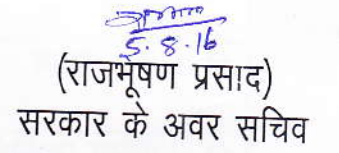 5.8.16
(राजभूषण प्रसाद)
सरकार के अवर सचिव